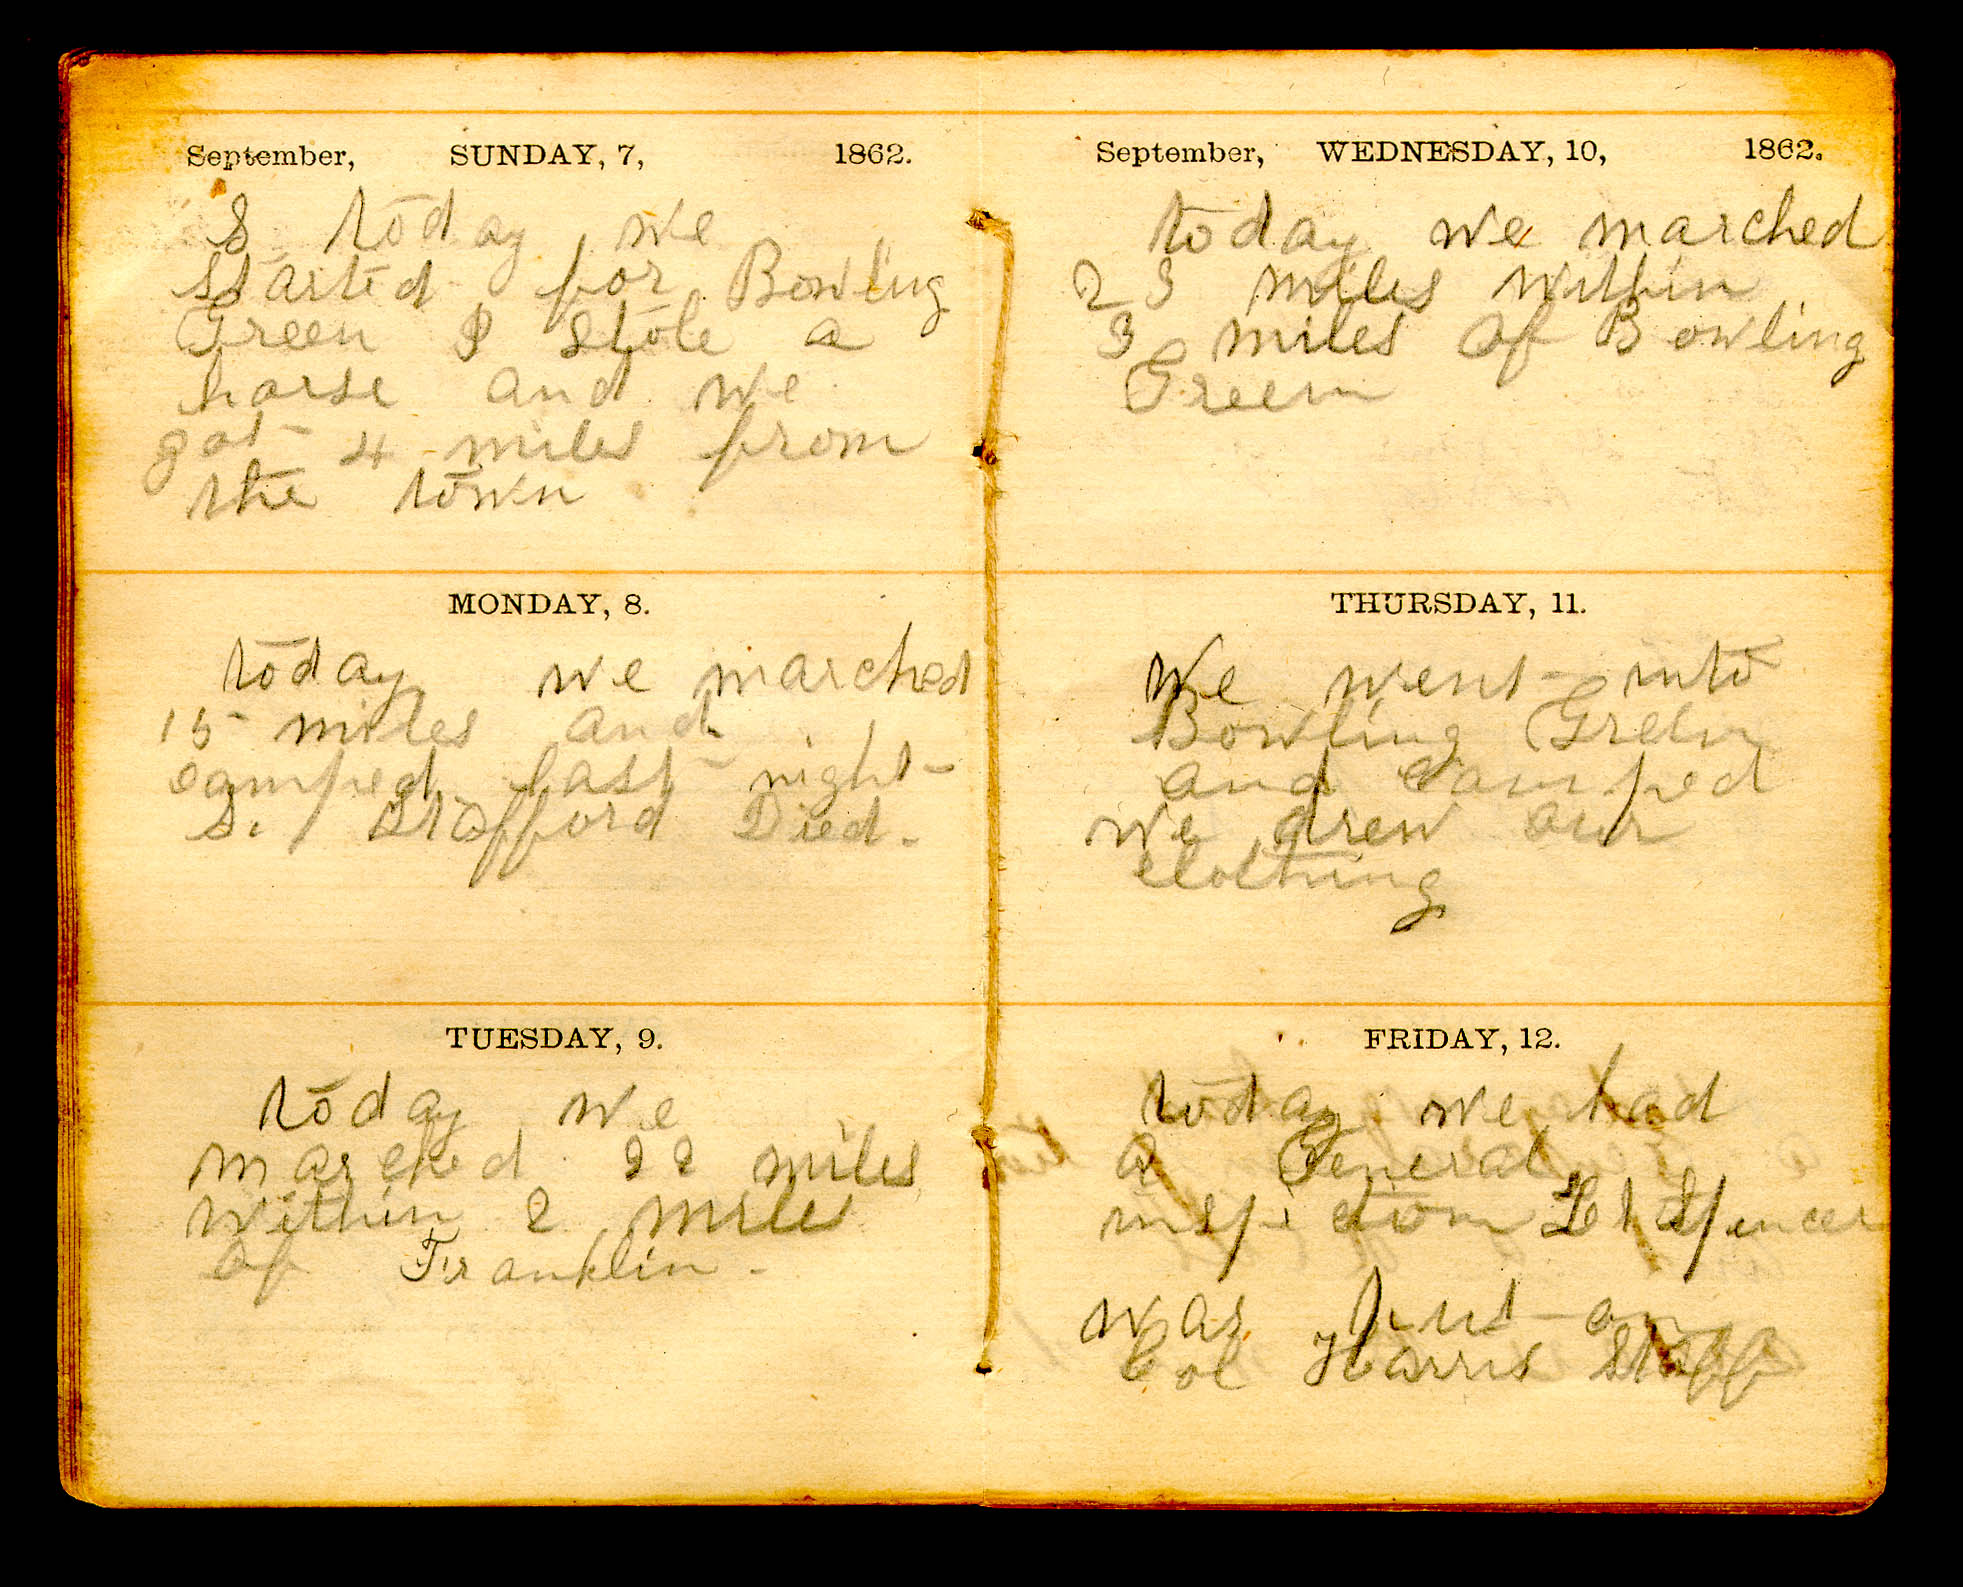 September, SUNDAY, 7, 1862.
S today we
started for Bowling
Green I stole a
horse and we
got 4 miles from
the town
MONDAY, 8.
today we marched
15 miles and
camped last night
Stafford Died.
TUESDAY, 9.
today we
marched 22 miles
within 2 miles
of Franklin -
September, WEDNESDAY, 10, 1862.
today we marched
23 miles within
3 miles of Bowling
Green
THURSDAY, 11.
We went into
Bowling Green
and camped
we drew our
clothing
FRIDAY, 12.
today we had
a General
Lt Spencer
was put on
Col Harris Staff